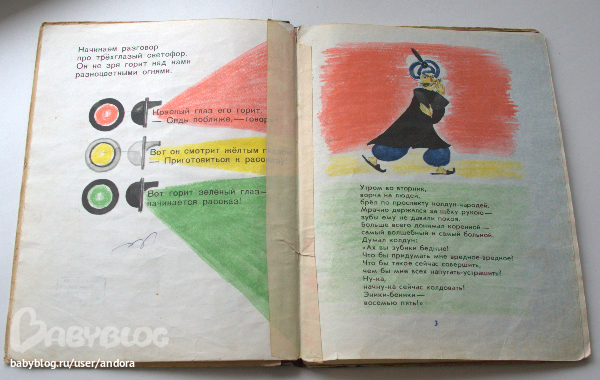 Начинаем разговор
про трёхглазый светофор.
Он не зря горит над нами
разноцветными огнями.
Красный глаз его горит.
— Сядь поближе,—говор
Вот он смотрит жёлтым гла
— Приготовиться к расска
Вот горит зелёный глаз—
начинается рассказ!
Утром во вторник,
ворча на людей,
брёл по проспекту колдун-чародей.
Мрачно держался за щёку рукою—
зубы ему не давали покоя.
Больше всего донимал коренной —
самый волшебный и самый больной.
Думал колдун:
«Ах вы зубики бедные!
Что бы придумать мне вредное-вредное!
Что бы такое сейчас совершить,
чем бы мне всех напугать-устрашить!
Ну-ка,
начну-ка сейчас колдовать!
Эники-беники—
восемью пять!»
3
BABYBLOG
babyblog.ru/user/andora